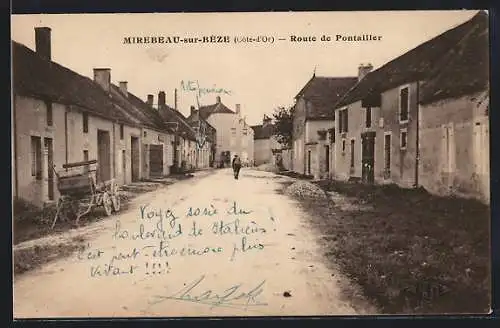 MIREBEAU-sur-BÈZE (Côte-d'Or) — Route de Pontailler
Voyez sortie du
boulevard de Italiens
c'est peut-être encore plus
vivant !!!